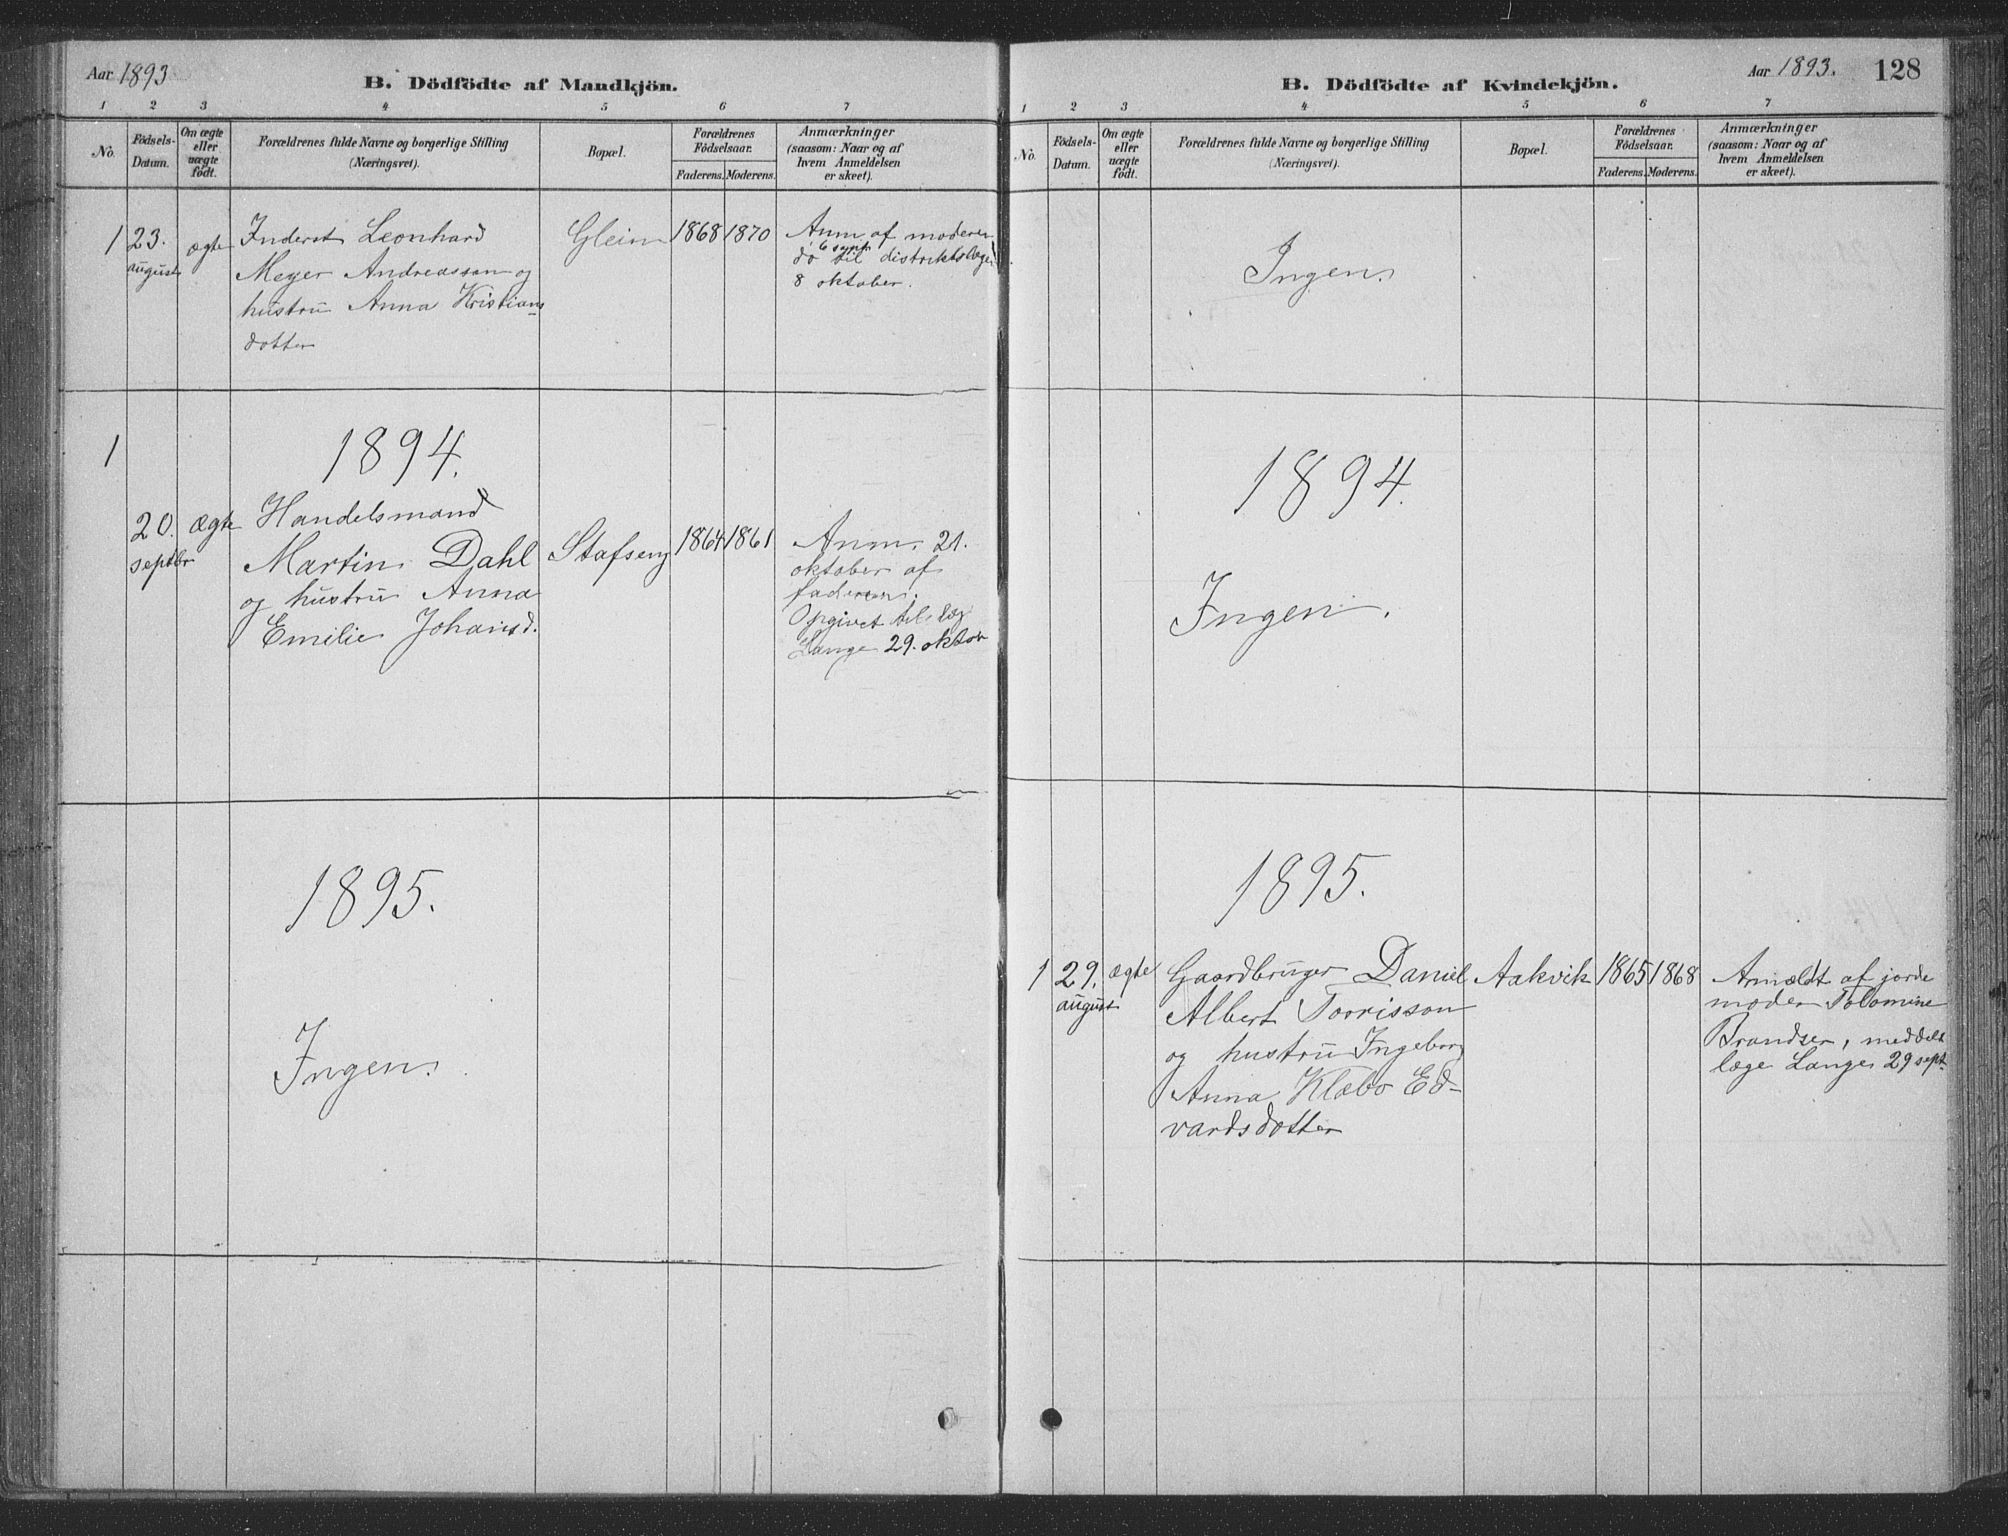 Aar 1893
B. Dödfödte af Mandkjön.
1 2 3 4 5 6 7
No.
Födsels-
Datum.
Om ægte
eller
uægte
födt.
Forældrenes fulde Navne og borgerlige Stilling
(Næringsvei).
Bopæl.
Forældrenes
Födselsaar.
Faderens. Moderens.
Anmærkninger
(saasom: Naar og af
hvem Anmeldelsen
er skeet).
1 23. august ægte
Inderst Leonhard
Meyer Andreasson og
hustru Anna Kristians
dotter
Glein 1868 1870
Anm af moderen
6 sept
do til distriktslægen
8 oktober.
1
1894.
20. septbr ægte
Handelsmand
Martin Dahl
og hustru Anna
Emilie Johansd.
Stafseng 1864 1861
Anm. 21.
oktober af
faderen.
Opgivet til læg
Lange 29. oktor
1895.
Ingen.
Aar 1893. 128
B. Dödfödte af Kvindekjön.
1 2 3 4 5 6 7
No.
Födsels-
Datum.
Om ægte
eller
uægte
födt.
Forældrenes fulde Navne og borgerlige Stilling
(Næringsvei).
Bopæl.
Forældrenes
Födselsaar.
Faderens. Moderens.
Anmærkninger
(saasom: Naar og af
hvem Anmeldelsen
er skeet).
Ingen.
1894.
Ingen.
1895.
1 29. august ægte
Gaardbruger Daniel
Albert Torrisson
og hustru Ingeborg
Anna Klæbo Ed-
vardsdotter
Aakvik 1865 1868
Anmeldt af jorde
moder Tolomine
Brandser, meddelt
læge Lange 29 sept.